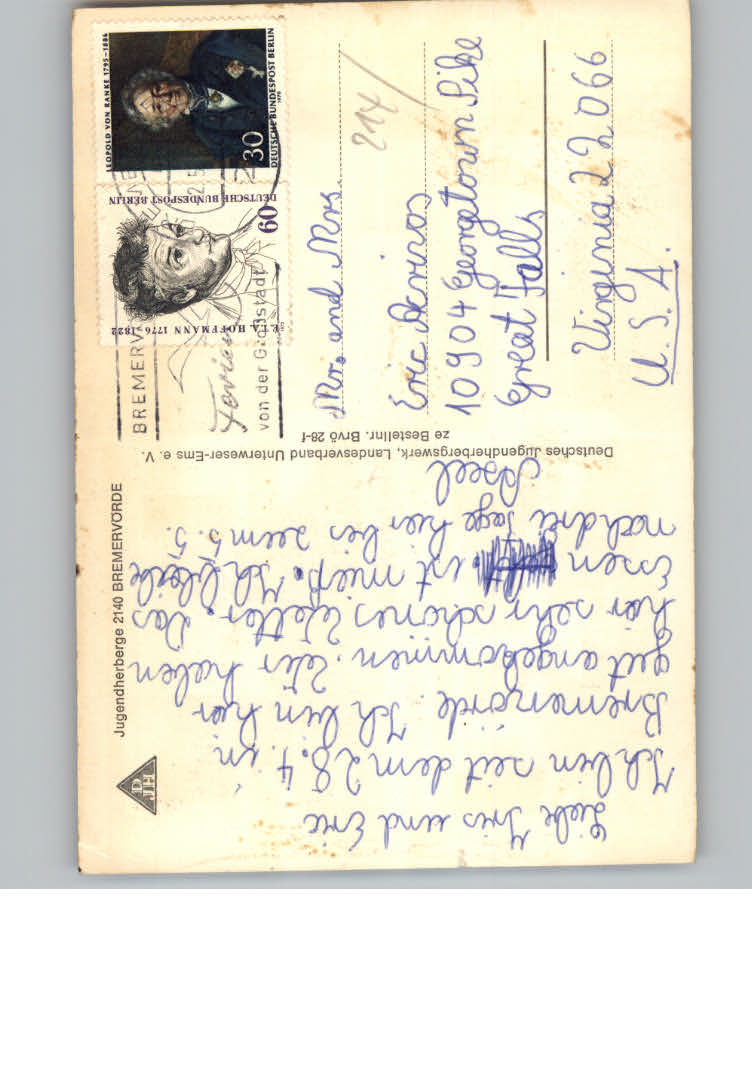 Jugendherberge 2140 BREMERVÖRDE
DJH
Liebe Iris und Eric
Ich bin seit dem 28.4. in
Bremerörde. Ich bin hier
gut angekommen. Wir haben
hier sehr schönes Wetter. Das
Essen ist mies. Ich bleibe
noch drei Tage hier bis zum 5.5.
Axel
Deutsches Jugendherbergswerk, Landesverband Unterweser-Ems e. V.
ze Bestellnr. Brvö 28-f
LEOPOLD VON RANKE 1795-1886
30
DEUTSCHE BUNDESPOST BERLIN
1970
DEUTSCHE BUNDESPOST BERLIN
60
E.T.A. HOFFMANN 1776-1822
BREMERV
von der Großstadt
217/
Mr. and Mrs.
Eric
10904 Georgetown Pike
Great Falls
Virginia 22066
U.S.A.